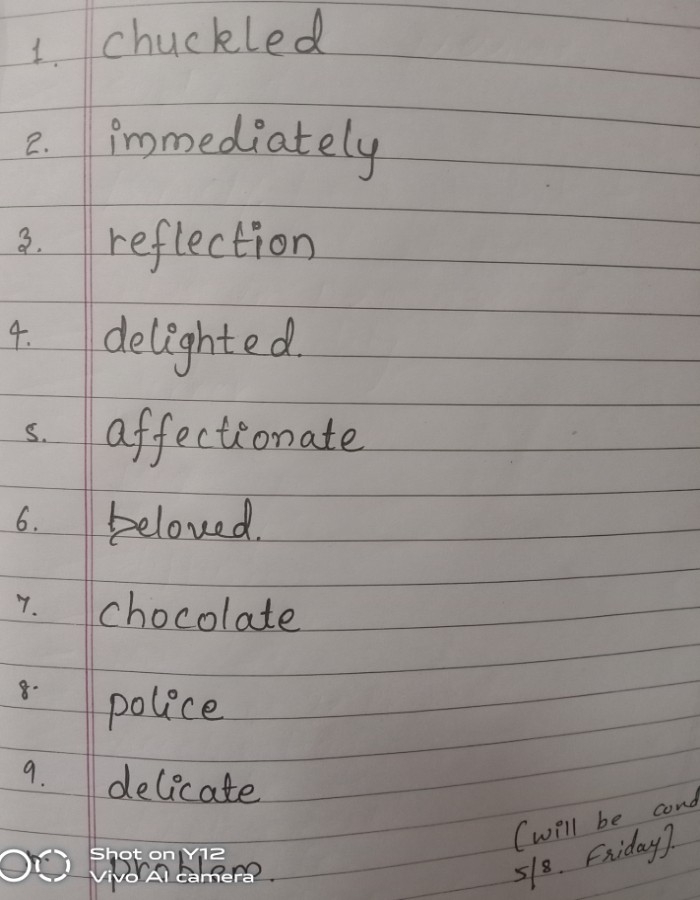 1. chuckled
2. immediately
3. reflection
4. delighted.
5. affectionate
6. beloved.
7. chocolate
8. police
9. delicate
(will be cond
5/8. Friday].
problem.
Shot on Y12
Vivo AI camera